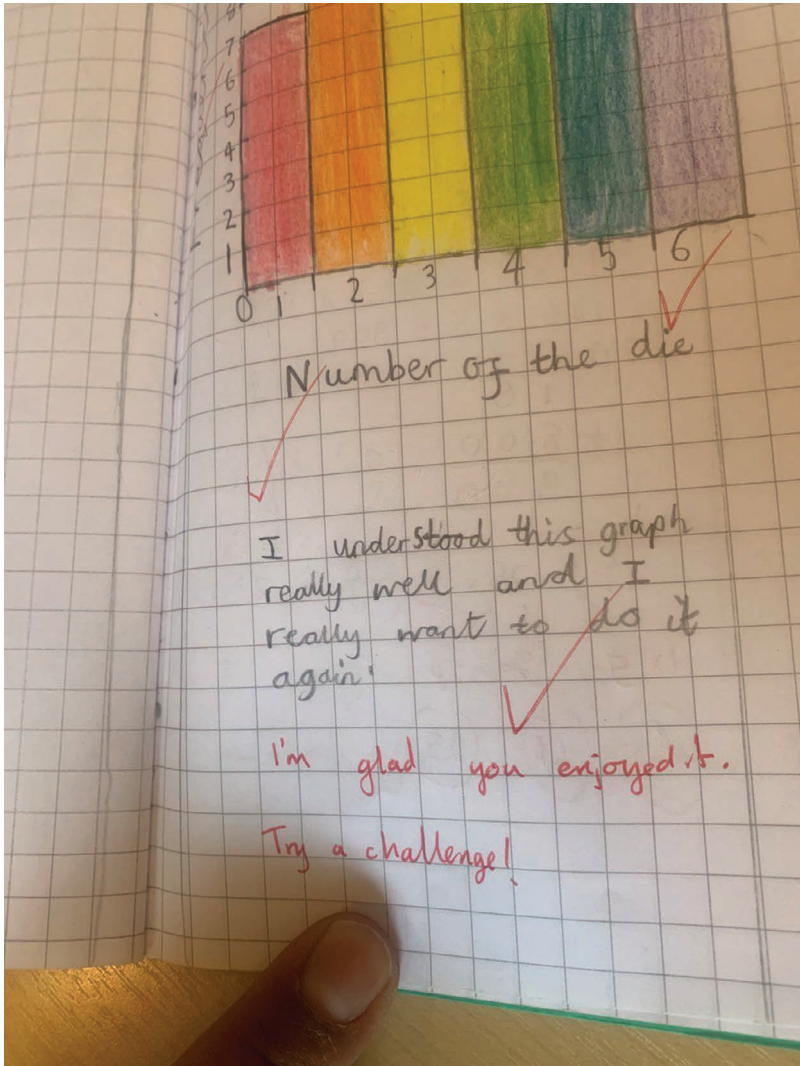 8
7
6
5
4
3
2
1
0 1 2 3 4 5 6
Number of the die
I understood this graph
really well and I
really want to do it
again.
I'm glad you enjoyed it.
Try a challenge!